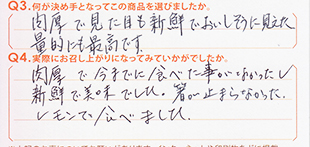 Q3.何が決め手となってこの商品を選びましたか。
肉厚で見た目も新鮮でおいしそうに見えた
量的にも最高です。
Q4.実際にお召し上がりになってみていかがでしたか。
肉厚で今までに食べた事がなかった
新鮮で美味でした。箸が止まらなかった。
レモンで食べました。